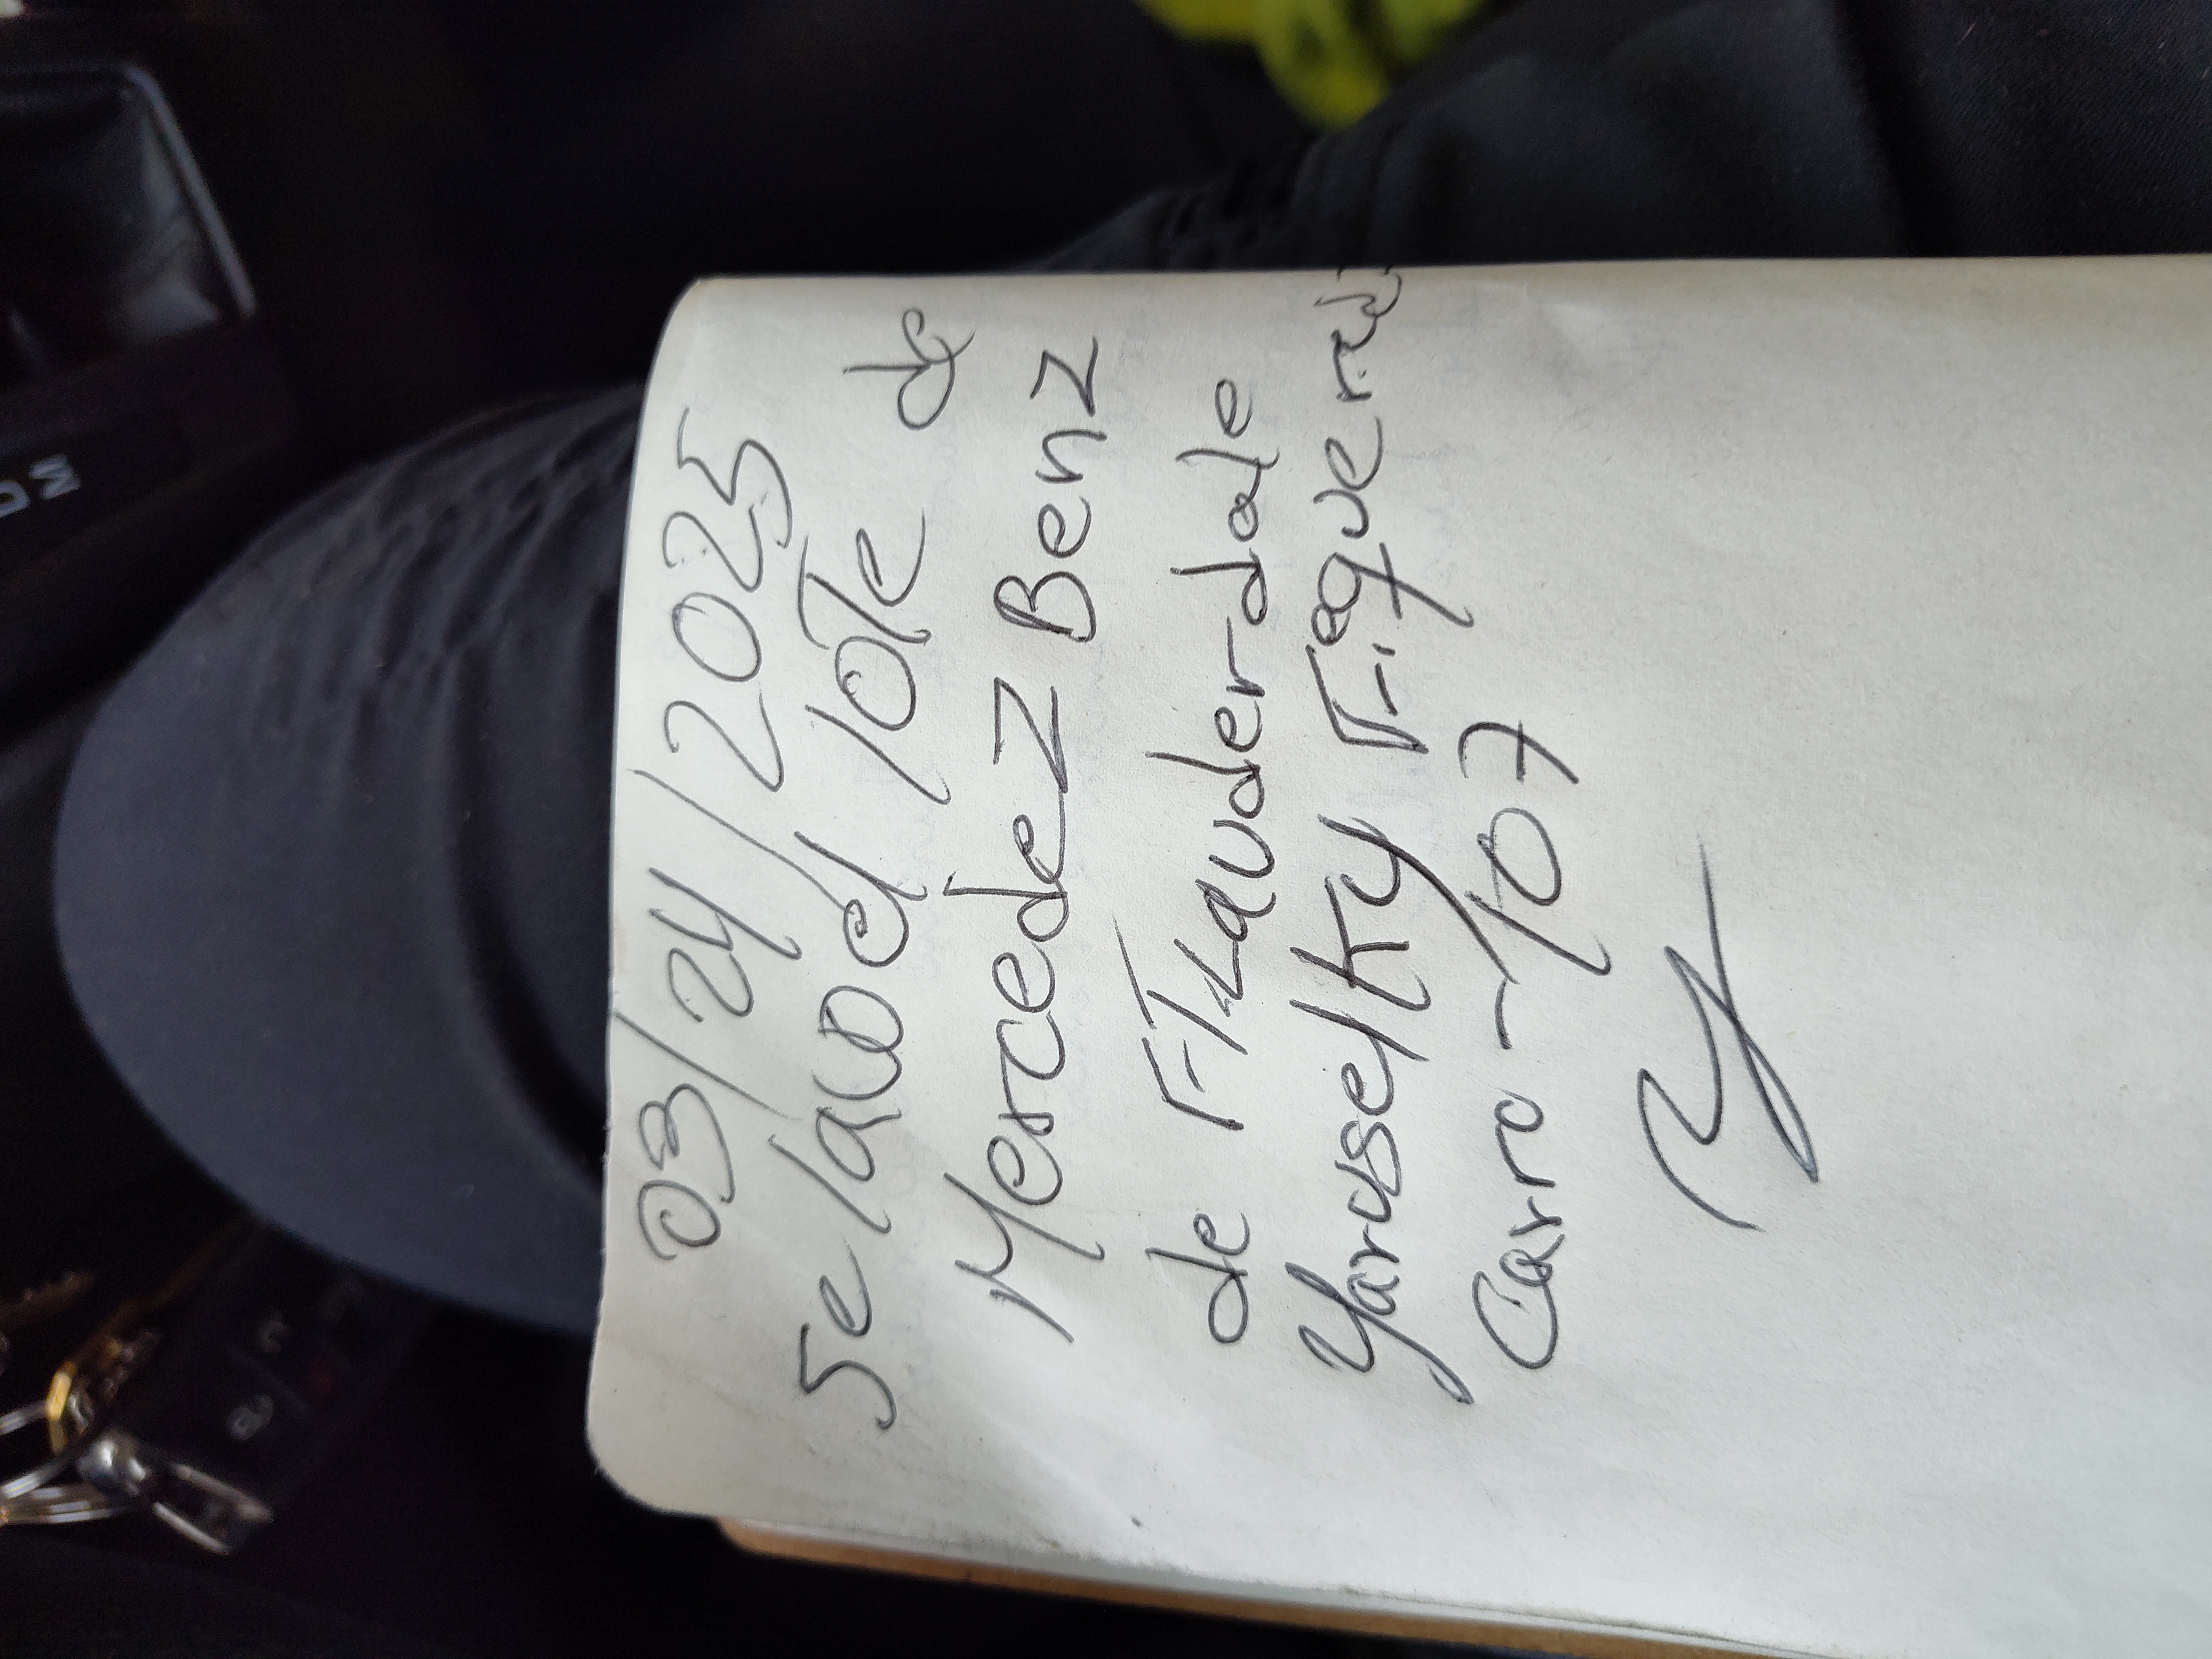 03/24/2025
Se lavo el lote de
Mercedez Benz
de FTLauderdale
Yaruselky Figuered
Carro - 107